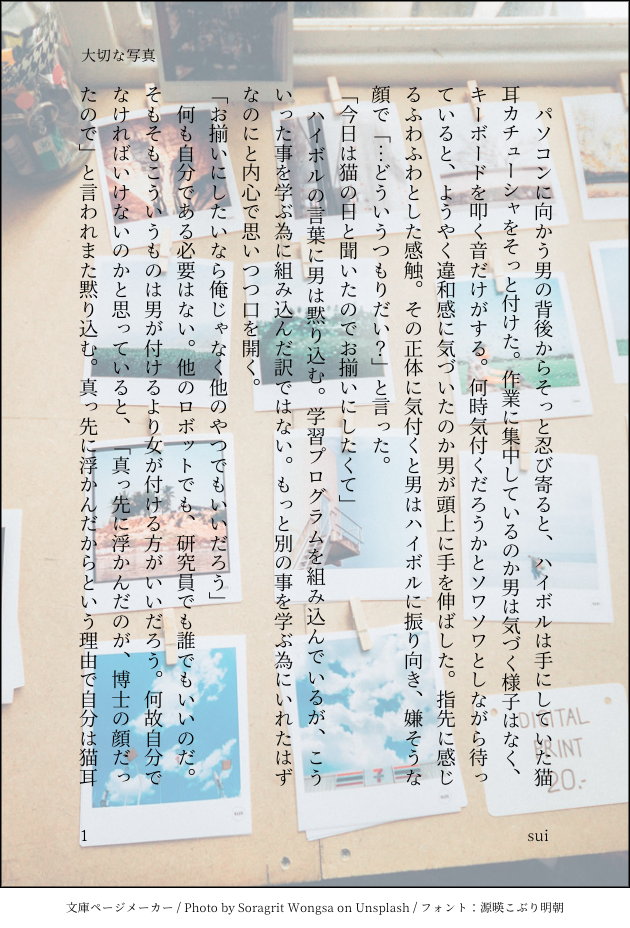 大切な写真
　パソコンに向かう男の背後からそっと忍び寄ると、ハイボルは手にしていた猫
耳カチューシャをそっと付けた。作業に集中しているのか男は気づく様子はなく、
キーボードを叩く音だけがする。何時気付くだろうかとソワソワとしながら待っ
ていると、ようやく違和感に気づいたのか男が頭上に手を伸ばした。指先に感じ
るふわふわとした感触。その正体に気付くと男はハイボルに振り向き、嫌そうな
顔で「…どういうつもりだい？」と言った。
「今日は猫の日と聞いたのでお揃いにしたくて」
　ハイボルの言葉に男は黙り込む。学習プログラムを組み込んでいるが、こう
いった事を学ぶ為に組み込んだ訳ではない。もっと別の事を学ぶ為にいれたはず
なのにと内心で思いつつ口を開く。
「お揃いにしたいなら俺じゃなく他のやつでもいいだろう」
　何も自分である必要はない。他のロボットでも、研究員でも誰でもいいのだ。
そもそもこういうものは男が付けるより女が付ける方がいいだろう。何故自分で
なければいけないのかと思っていると、「真っ先に浮かんだのが、博士の顔だっ
たので」と言われまた黙り込む。真っ先に浮かんだからという理由で自分は猫耳
1
sui
DIGITAL
PRINT
20.-
文庫ページメーカー / Photo by Soragrit Wongsa on Unsplash / フォント：源暎こぶり明朝